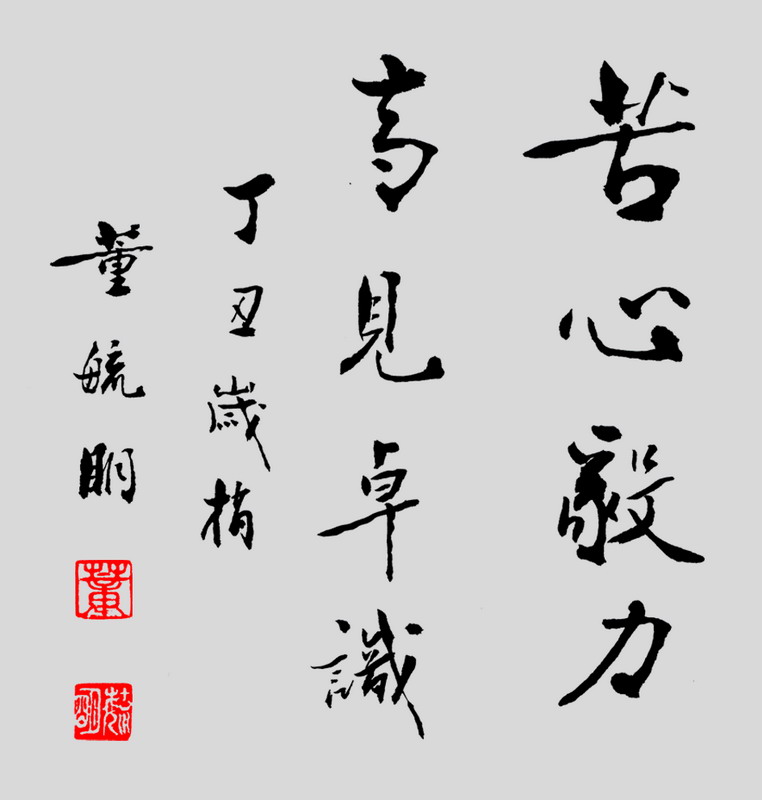 苦心毅力
高見卓識
丁丑歲梢
董毓明
董
毓明